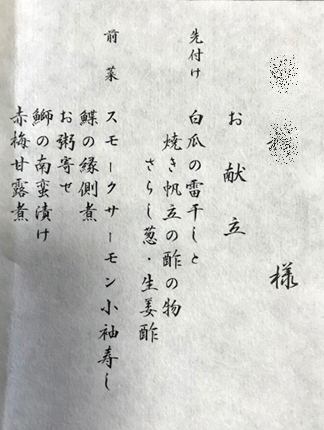 様
お献立
先付け 白瓜の雷干しと
焼き帆立の酢の物
さらし葱・生姜酢
前菜 スモークサーモン小袖寿し
鰈の縁側煮
お粥寄せ
鰤の南蛮漬け
赤梅甘露煮